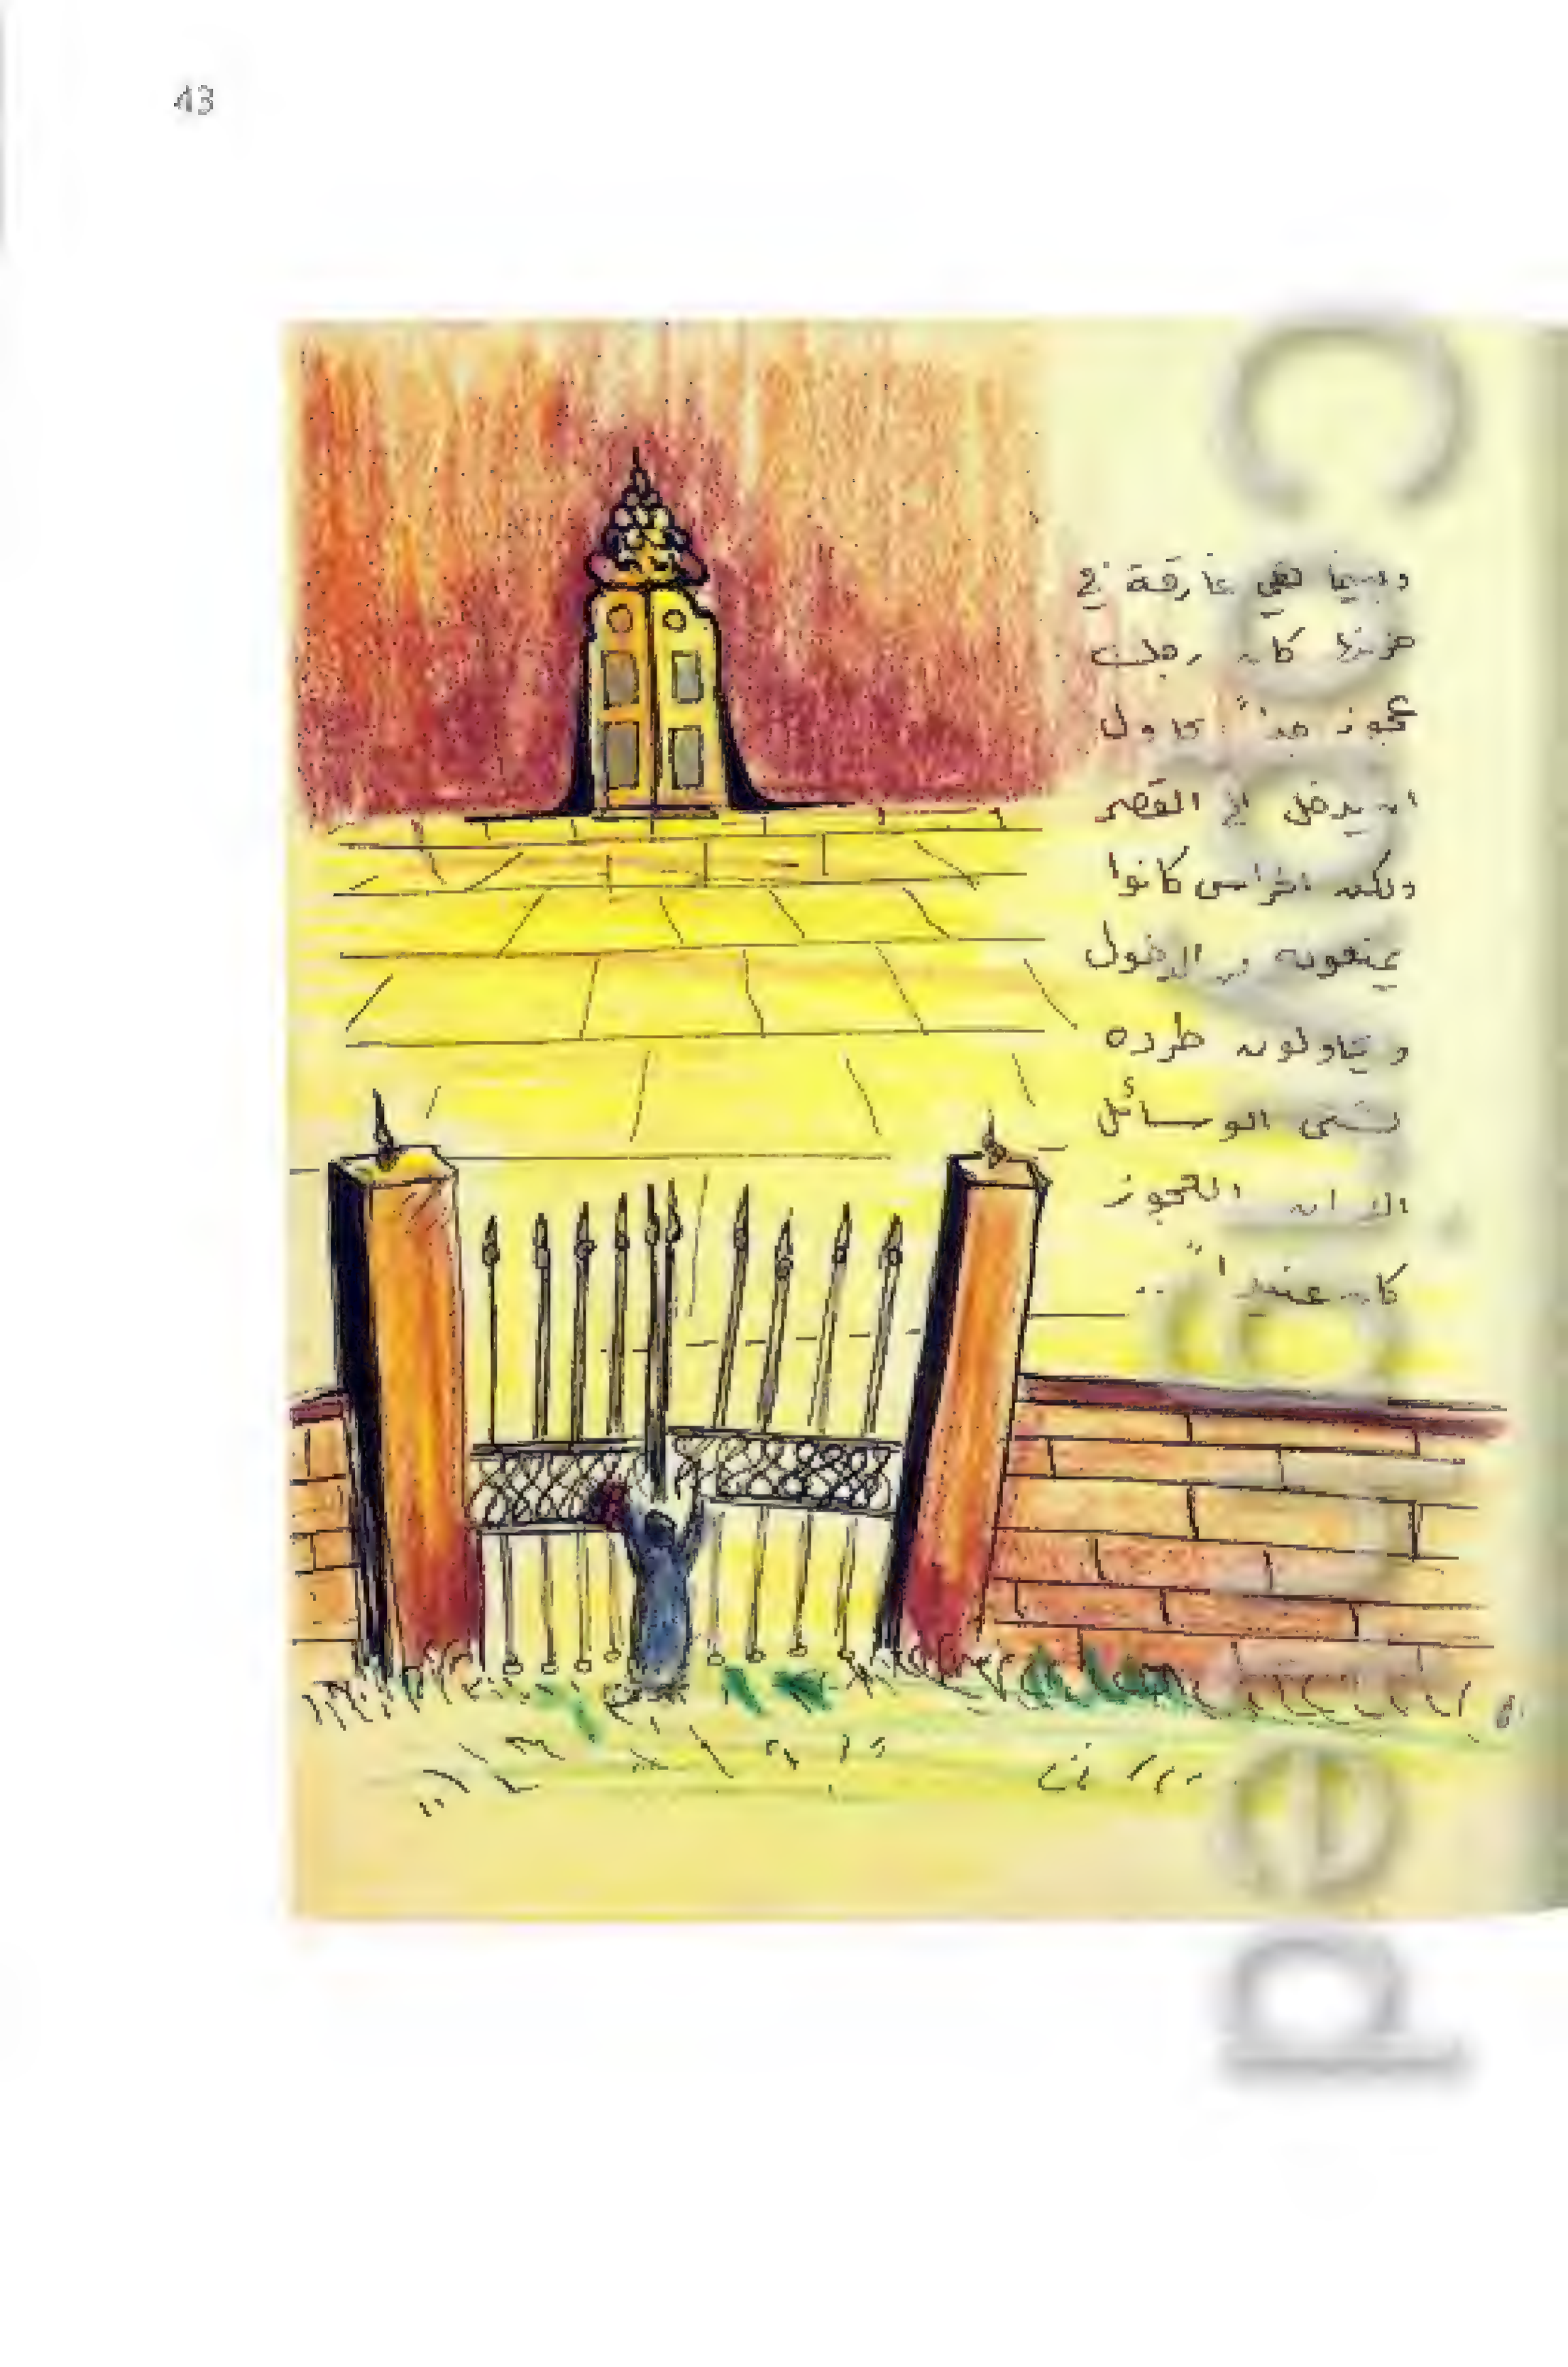 43
وبينما هي غارقة في
حزنها كان رجل
عجوز جداً يحاول
ان يدخل الى القصر
ولكن الحراس كانوا
يمنعونه من الدخول
ويحاولون طرده
بشتى الوسائل
الا ان العجوز
كان عنيداً ..
Copyrighted